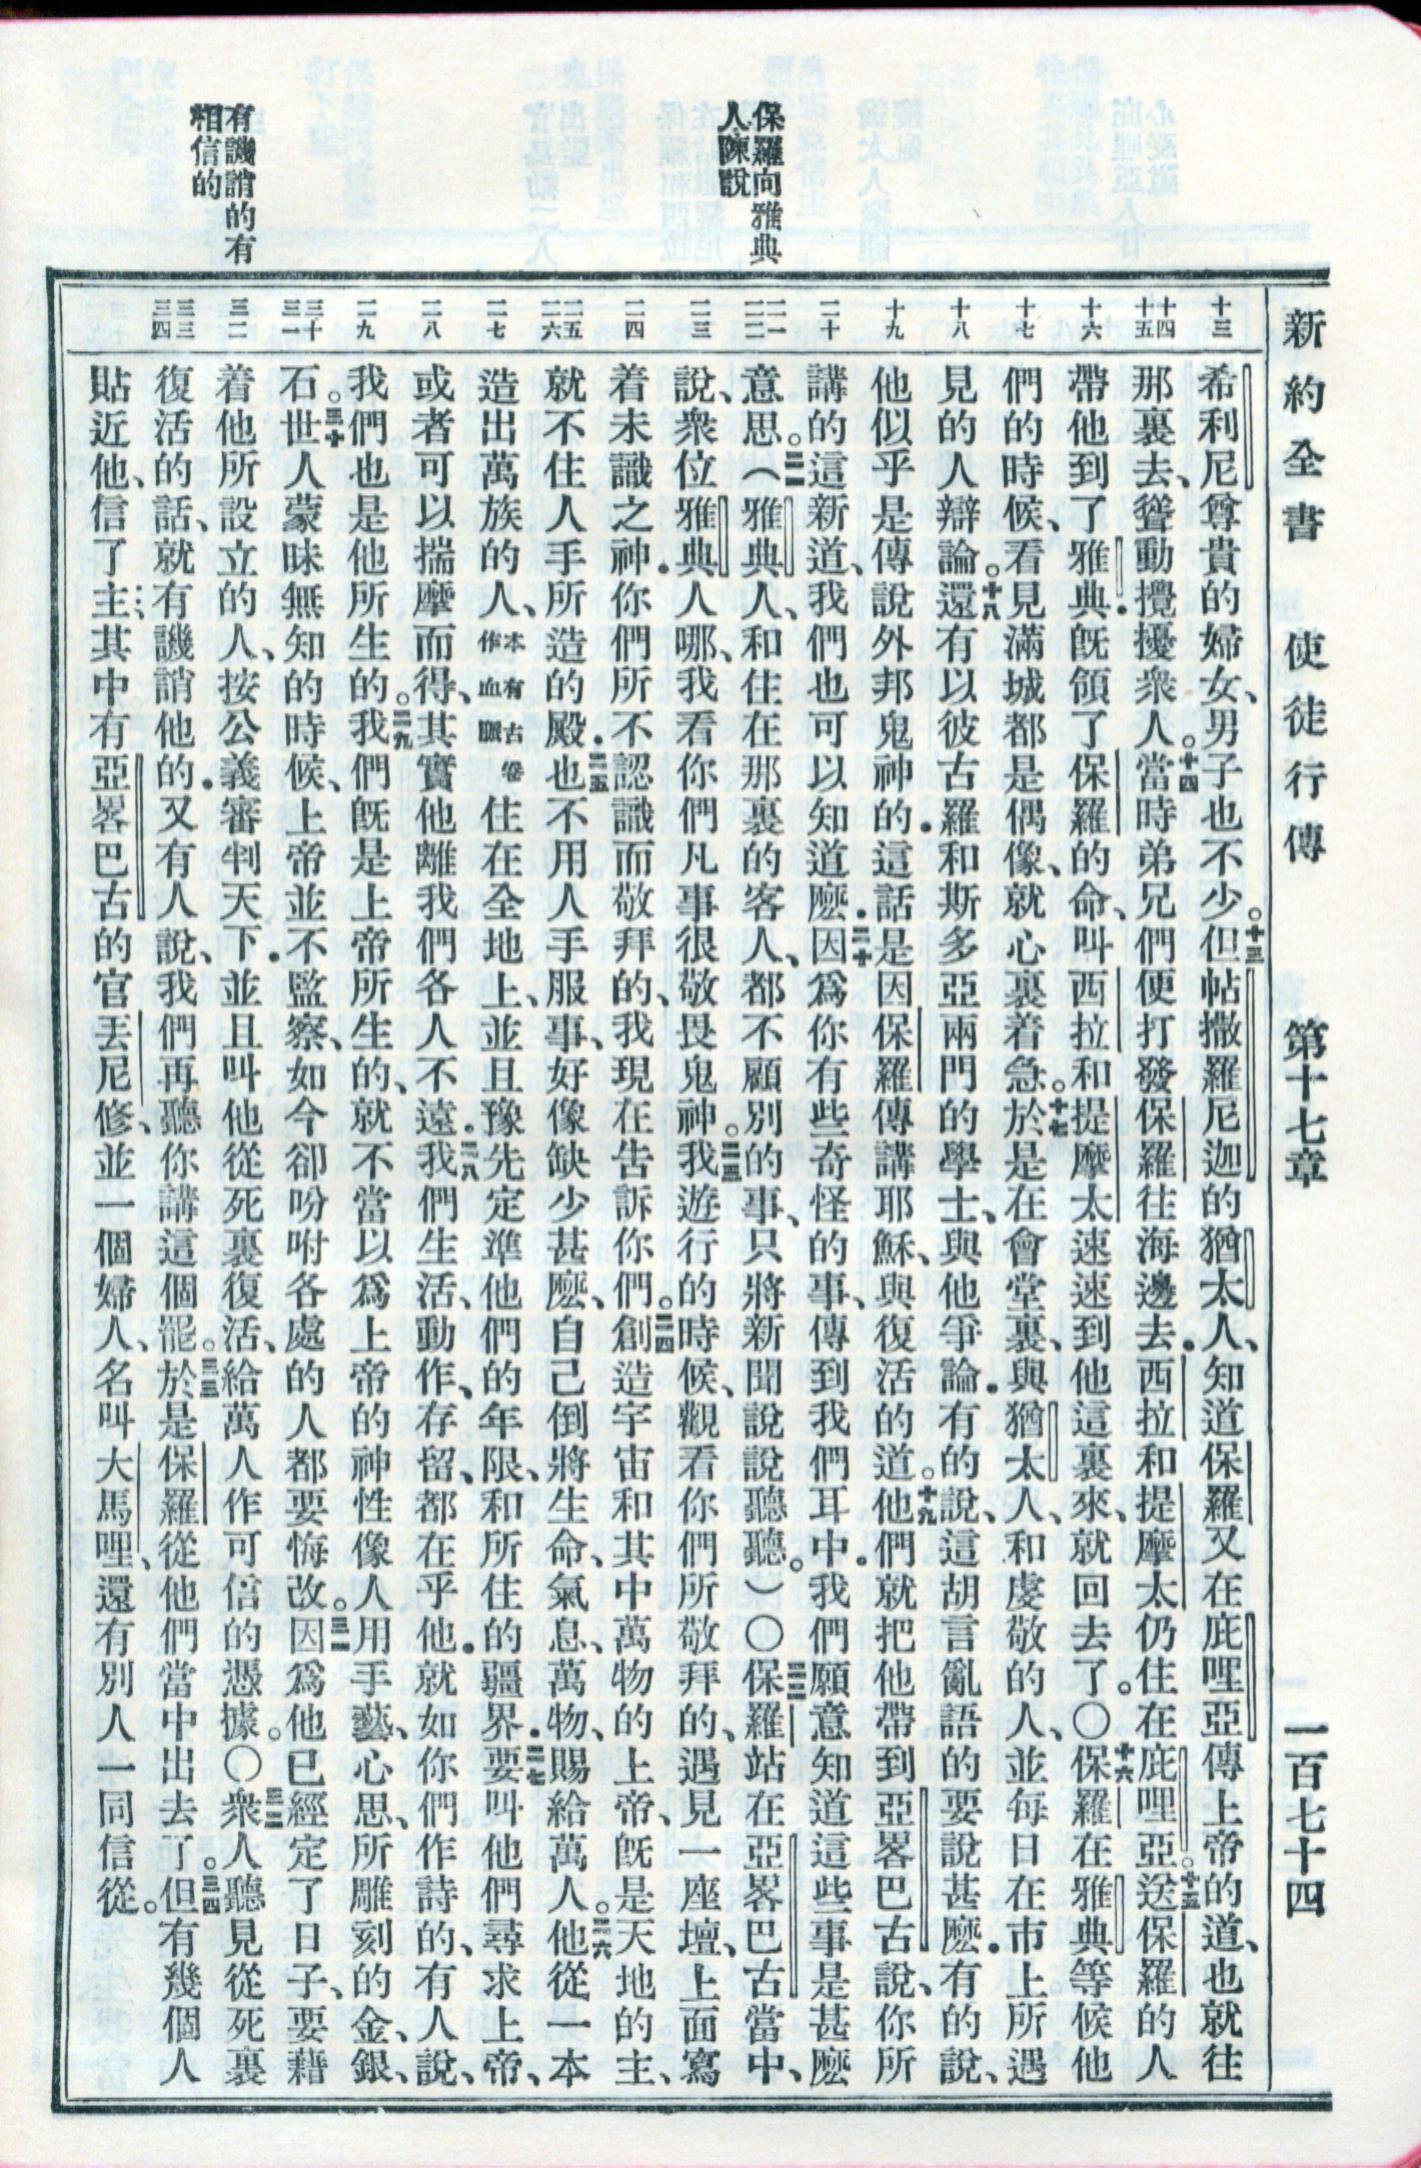 新約全書 使徒行傳 第十七章 一百七十四
保羅向雅典
人陳說
有譏誚的有
相信的
十三
十四
十五
十六
十七
十八
十九
二十
二一
二二
二三
二四
二五
二六
二七
二八
二九
三十
三一
三二
三三
三四
希利尼尊貴的婦女、男子也不少。十三但帖撒羅尼迦的猶太人、知道保羅又在庇哩亞傳上帝的道、也就往
那裏去、聳動攪擾衆人。十四當時弟兄們便打發保羅往海邊去.西拉和提摩太仍住在庇哩亞。十五送保羅的人
帶他到了雅典.旣領了保羅的命、叫西拉和提摩太速速到他這裏來、就回去了。○十六保羅在雅典等候他
們的時候、看見滿城都是偶像、就心裏着急。十七於是在會堂裏、與猶太人、和虔敬的人、並每日在市上所遇
見的人辯論。十八還有以彼古羅和斯多亞兩門的學士、與他爭論.有的說、這胡言亂語的要說甚麽.有的說、
他似乎是傳說外邦鬼神的.這話是因保羅傳講耶穌、與復活的道。十九他們就把他帶到亞畧巴古說、你所
講的這新道、我們也可以知道麽.二十因爲你有些奇怪的事、傳到我們耳中.我們願意知道這些事是甚麽
意思。二一（雅典人、和住在那裏的客人、都不顧別的事、只將新聞說說聽聽。）○二二保羅站在亞畧巴古當中、
說、衆位雅典人哪、我看你們凡事很敬畏鬼神。二三我遊行的時候、觀看你們所敬拜的、遇見一座壇、上面寫
着未識之神.你們所不認識而敬拜的、我現在告訴你們。二四創造宇宙和其中萬物的上帝、旣是天地的主、
就不住人手所造的殿.二五也不用人手服事、好像缺少甚麽、自己倒將生命、氣息、萬物、賜給萬人。二六他從一本
造出萬族的人、本有古卷作血脈住在全地上、並且豫先定準他們的年限、和所住的疆界.二七要叫他們尋求上帝、
或者可以揣摩而得、其實他離我們各人不遠.二八我們生活、動作、存留、都在乎他.就如你們作詩的、有人說、
我們也是他所生的。二九我們旣是上帝所生的、就不當以爲上帝的神性像人用手藝、心思、所雕刻的金、銀、
石。三十世人蒙昧無知的時候、上帝並不監察、如今卻吩咐各處的人都要悔改。三一因爲他已經定了日子、要藉
着他所設立的人、按公義審判天下.並且叫他從死裏復活、給萬人作可信的憑據。○三二衆人聽見從死裏
復活的話、就有譏誚他的.又有人說、我們再聽你講這個罷。三三於是保羅從他們當中出去了。三四但有幾個人
貼近他、信了主、其中有亞畧巴古的官丟尼修、並一個婦人、名叫大馬哩、還有別人一同信從。